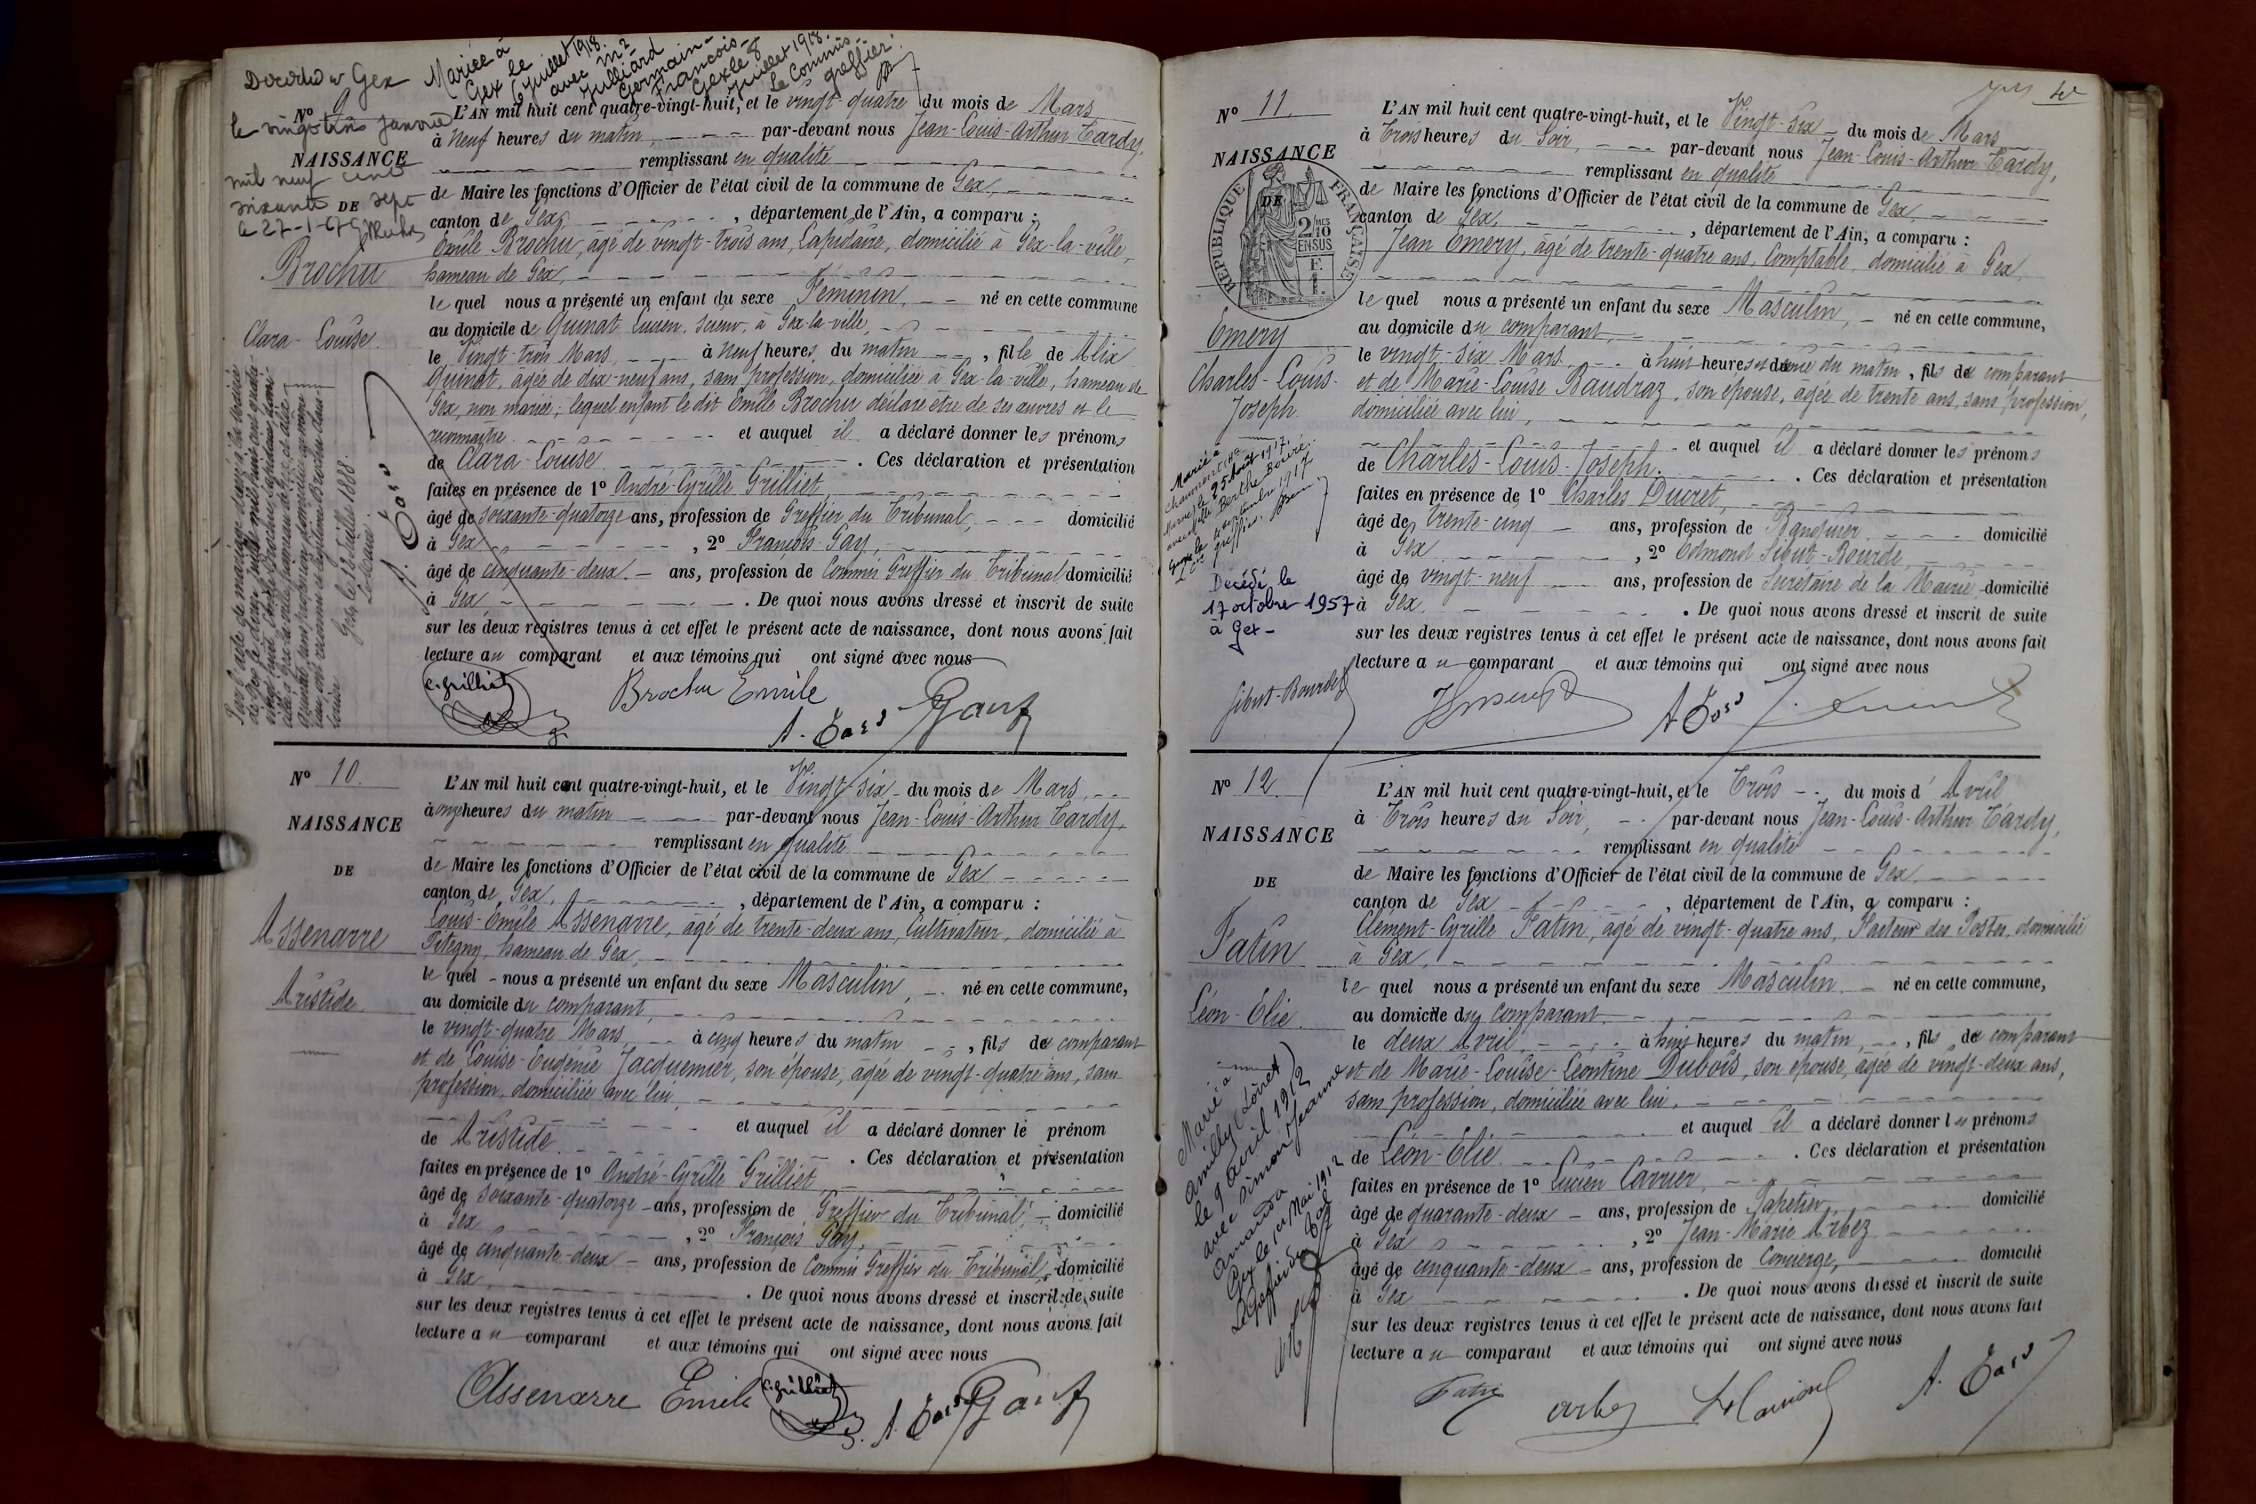 Mariée à
Gex le
6 juillet 1918
avec Mr
Julliard
Germain-
François-
Gex le 8
juillet 1918.
Le Commis-
greffier.
Nº 9
le vingt trois janvier
NAISSANCE
mil neuf cent
soixante DE sept
le 27-1-67
Brochu
Clara-Louise.
L'AN mil huit cent quatre-vingt-huit, et le vingt-quatre du mois de Mars
à Neuf heures du matin, par-devant nous Jean-Louis-Arthur Tardy,
remplissant en qualité
de Maire les fonctions d'Officier de l'état civil de la commune de Gex,
canton de Gex, , département de l'Ain, a comparu :
Emile Brochu, âgé de vingt-trois ans, Lapidaire, domicilié à Gex-la-ville,
hameau de Gex,
le quel nous a présenté un enfant du sexe Féminin, né en cette commune
au domicile de Quinat Lucien, scieur, à Gex-la-ville,
le Vingt-trois Mars à neuf heures du matin , fille de Alix
Quinat, âgée de dix-neuf ans, sans profession, domiciliée à Gex-la-ville, hameau de
Gex, non mariée; lequel enfant le dit Emile Brochu déclare être de ses œuvres et le
reconnaître et auquel il a déclaré donner les prénoms
de Clara-Louise . Ces déclaration et présentation
faites en présence de 1º André-Cyrille Grilliet
âgé de soixante-quatorze ans, profession de Greffier du Tribunal, domicilié
à Gex , 2º François Gay,
âgé de cinquante-deux ans, profession de Commis Greffier du Tribunal domicilié
à Gex . De quoi nous avons dressé et inscrit de suite
sur les deux registres tenus à cet effet le présent acte de naissance, dont nous avons fait
lecture au comparant et aux témoins qui ont signé avec nous
Gex, le 12 Juillet 1888.
Le Maire.
C. Grilliet
Brochu Emile
Nº 10.
NAISSANCE
DE
Assenarre
Aristide.
L'AN mil huit cent quatre-vingt-huit, et le Vingt-six du mois de Mars
à onze heures du matin par-devant nous Jean-Louis-Arthur Tardy,
remplissant en qualité
de Maire les fonctions d'Officier de l'état civil de la commune de Gex
canton de Gex, , département de l'Ain, a comparu :
Louis-Emile Assenarre, âgé de trente-deux ans, Cultivateur, domicilié à
Pitegny, hameau de Gex,
le quel nous a présenté un enfant du sexe Masculin, né en cette commune,
au domicile du comparant,
le vingt-quatre Mars, à cinq heures du matin , fils du comparant
et de Louise-Eugénie Jacquemier, son épouse, âgée de vingt-quatre ans, sans
profession, domiciliée avec lui,
et auquel il a déclaré donner le prénom
de Aristide . Ces déclaration et présentation
faites en présence de 1º André-Cyrille Grilliet
âgé de soixante-quatorze ans, profession de Greffier du Tribunal, domicilié
à Gex , 2º François Gay,
âgé de cinquante-deux ans, profession de Commis Greffier du Tribunal, domicilié
à Gex, . De quoi nous avons dressé et inscrit de suite
sur les deux registres tenus à cet effet le présent acte de naissance, dont nous avons fait
lecture au comparant et aux témoins qui ont signé avec nous
Assenarre Emile
C. Grilliet
Nº 11.
NAISSANCE
DE
RÉPUBLIQUE FRANÇAISE
2 MES 10
EN SUS
Emery
Charles-Louis-
Joseph.
Marié à
Chaumont (Hte
Marne) le 25 août 1917.
avec Melle Berthe
Décédé le
17 octobre 1957
à Gex-
L'AN mil huit cent quatre-vingt-huit, et le Vingt-Six du mois de Mars
à Trois heures du Soir, par-devant nous Jean-Louis-Arthur Tardy,
remplissant en qualité
de Maire les fonctions d'Officier de l'état civil de la commune de Gex,
canton de Gex, , département de l'Ain, a comparu :
Jean Emery, âgé de trente-quatre ans, Comptable, domicilié à Gex
le quel nous a présenté un enfant du sexe Masculin, né en cette commune,
au domicile du comparant,
le vingt-six Mars à huit heures et demie du matin , fils du comparant
et de Marie-Louise Baudraz, son épouse, âgée de trente ans, sans profession,
domiciliée avec lui,
et auquel il a déclaré donner les prénoms
de Charles-Louis-Joseph. . Ces déclaration et présentation
faites en présence de 1º Charles Ducret,
âgé de trente-cinq ans, profession de Banquier domicilié
à Gex , 2º Edmond Sibut-Bourde,
âgé de vingt-neuf ans, profession de Secrétaire de la Mairie domicilié
à Gex . De quoi nous avons dressé et inscrit de suite
sur les deux registres tenus à cet effet le présent acte de naissance, dont nous avons fait
lecture au comparant et aux témoins qui ont signé avec nous
Sibut-Bourde
Nº 12.
NAISSANCE
DE
Fatin
Léon-Elie.
Marié à
Amilly (Loiret)
le 9 avril 1912
avec Simon Jeanne
Amanda
Gex le 1er Mai 1912
Le Greffier
L'AN mil huit cent quatre-vingt-huit, et le Trois du mois d'Avril
à Trois heures du Soir, par-devant nous Jean-Louis-Arthur Tardy,
remplissant en qualité
de Maire les fonctions d'Officier de l'état civil de la commune de Gex,
canton de Gex , département de l'Ain, a comparu :
Clément-Cyrille Fatin, âgé de vingt-quatre ans, Facteur des Postes, domicilié
à Gex,
le quel nous a présenté un enfant du sexe Masculin né en cette commune,
au domicile du comparant
le deux Avril, à huit heures du matin, , fils du comparant
et de Marie-Louise-Léontine Dubois, son épouse, âgée de vingt-deux ans,
sans profession, domiciliée avec lui,
et auquel il a déclaré donner les prénoms
de Léon-Elie . Ces déclaration et présentation
faites en présence de 1º Lucien Carrier,
âgé de quarante-deux ans, profession de Papetier, domicilié
à Gex , 2º Jean-Marie Arbez
âgé de cinquante-deux ans, profession de Concierge, domicilié
à Gex . De quoi nous avons dressé et inscrit de suite
sur les deux registres tenus à cet effet le présent acte de naissance, dont nous avons fait
lecture au comparant et aux témoins qui ont signé avec nous
Fatin